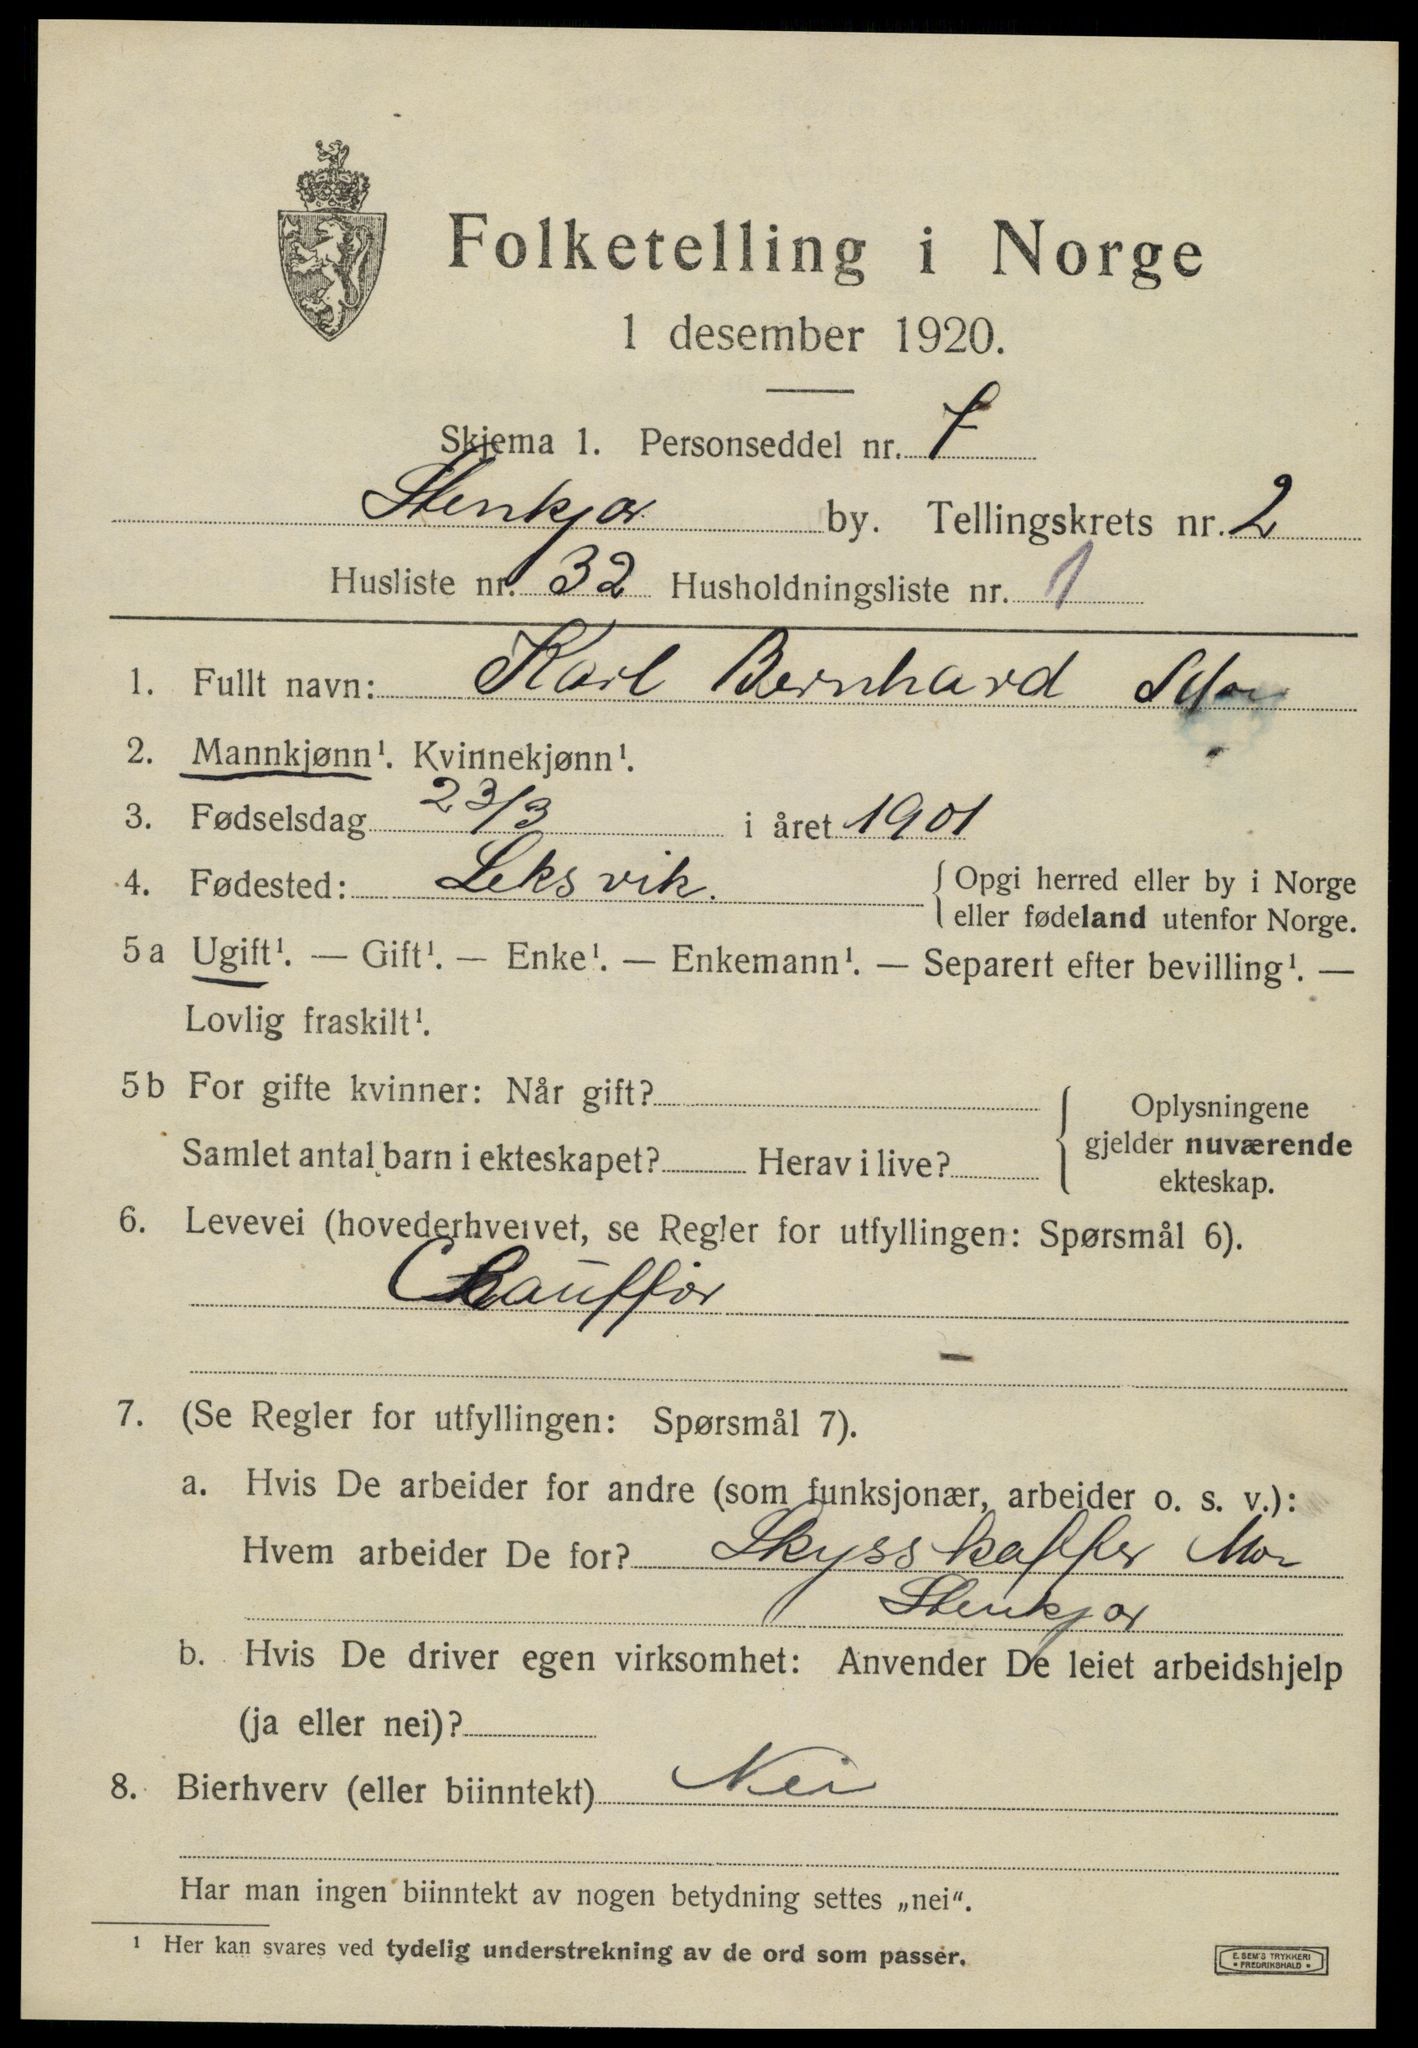 Folketelling i Norge
1 desember 1920.
Skjema 1. Personseddel nr. 7
Stenkjær by. Tellingskrets nr. 2
Husliste nr. 32 Husholdningsliste nr. 1
1. Fullt navn: Karl Bernhard
2. Mannkjønn¹. Kvinnekjønn¹.
3. Fødselsdag 23/3 i året 1901
4. Fødested: Leksvik. { Opgi herred eller by i Norge
eller fødeland utenfor Norge.
5 a Ugift¹. — Gift¹. — Enke¹. — Enkemann¹. — Separert efter bevilling¹. —
Lovlig fraskilt¹.
5 b For gifte kvinner: Når gift?
Samlet antal barn i ekteskapet? Herav i live?
{ Oplysningene
gjelder nuværende
ekteskap.
6. Levevei (hovederhvervet, se Regler for utfyllingen: Spørsmål 6).
Chauffør
7. (Se Regler for utfyllingen: Spørsmål 7).
a. Hvis De arbeider for andre (som funksjonær, arbeider o. s. v.):
Hvem arbeider De for? Skysskaffer Mo
Stenkjær
b. Hvis De driver egen virksomhet: Anvender De leiet arbeidshjelp
(ja eller nei)?
8. Bierhverv (eller biinntekt) Nei
Har man ingen biinntekt av nogen betydning settes „nei“.
¹ Her kan svares ved tydelig understrekning av de ord som passer.
E. SEM'S TRYKKERI
• FREDRIKSHALD •